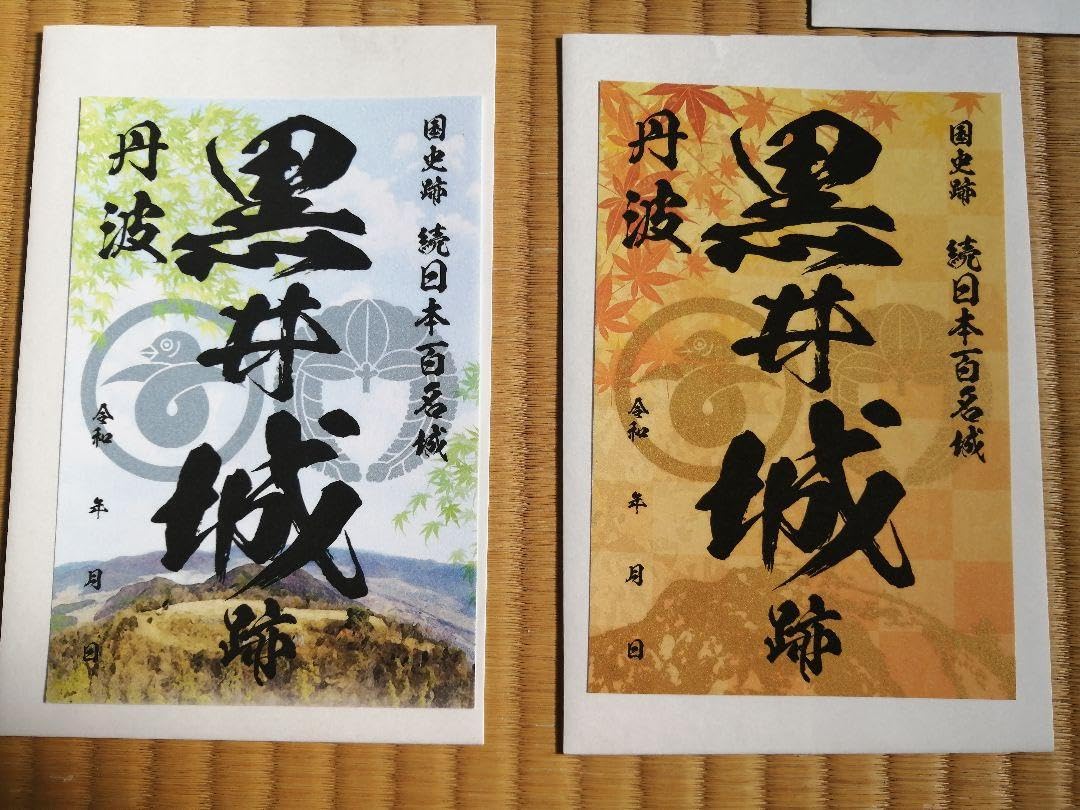 国史跡 続日本百名城
黒井城跡
丹波
令和 年 月 日
国史跡 続日本百名城
黒井城跡
丹波
令和 年 月 日